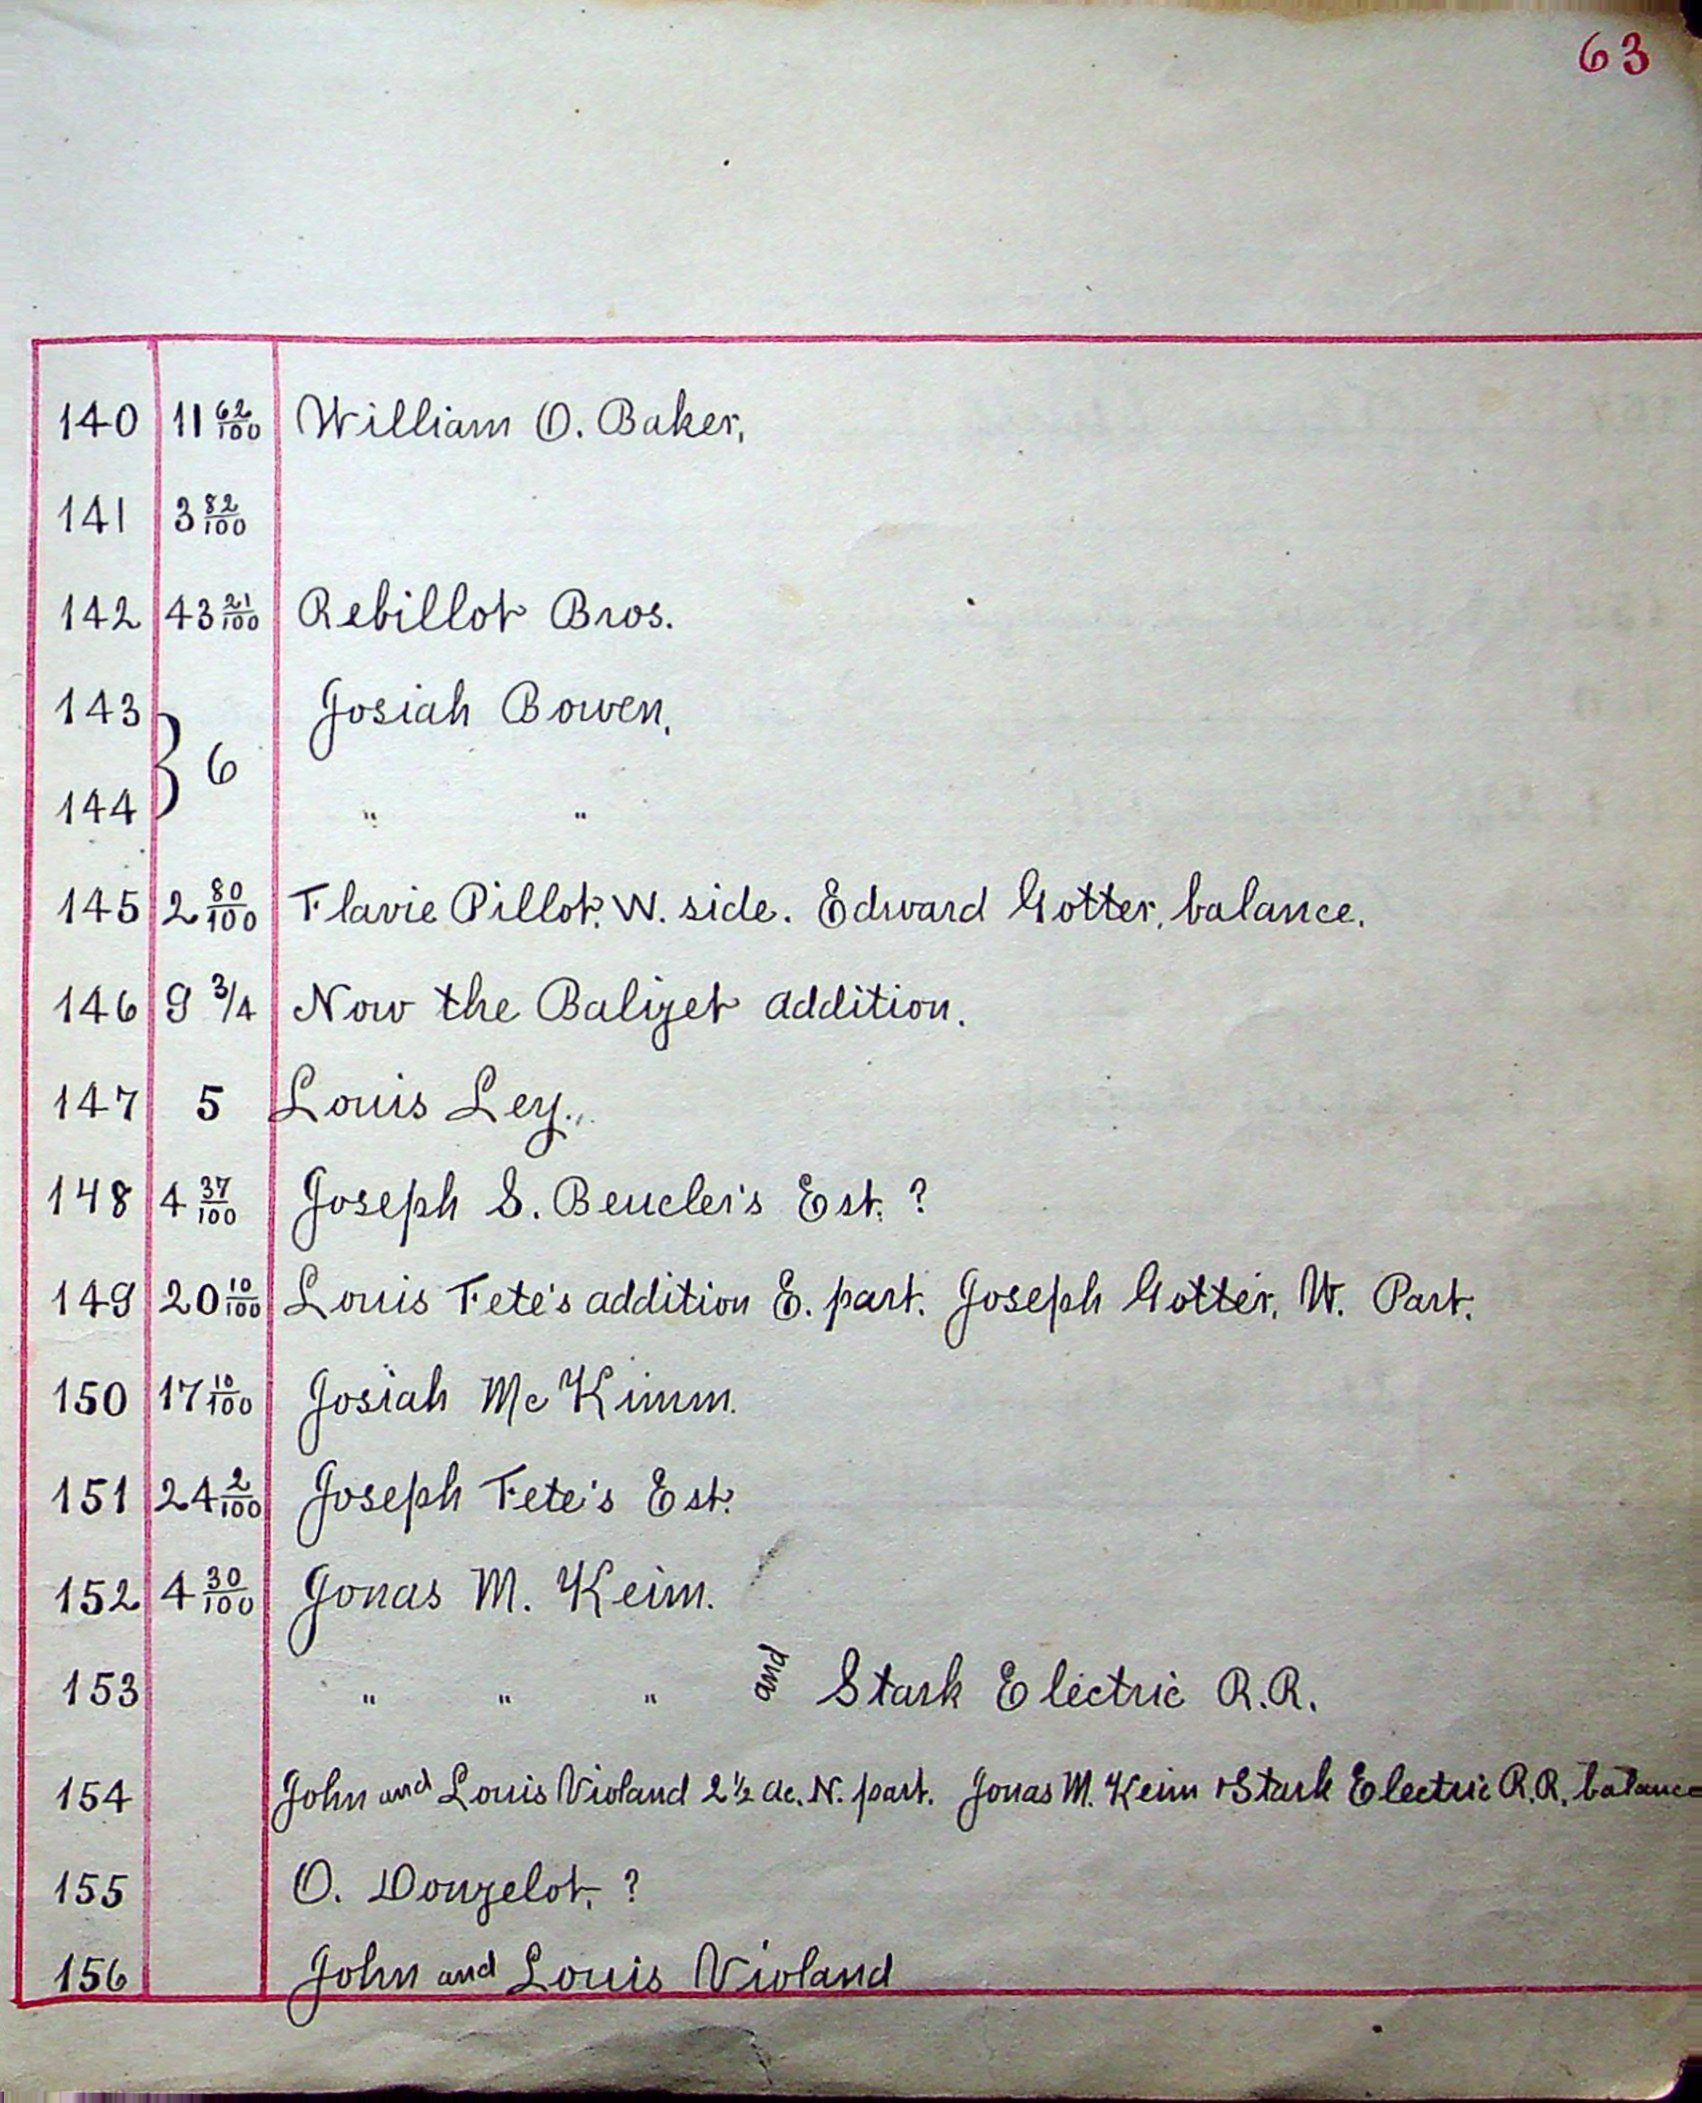 63
140 11 62/100 William O. Baker,
141 3 82/100
142 43 21/100 Rebillot Bros.
143 Josiah Bowen,
} 6
144 " "
145 2 80/100 Flavie Pillot, W. side. Edward Gotter, balance.
146 9 3/4 Now the Balizet addition.
147 5 Louis Ley.
148 4 37/100 Joseph S. Beucler's Est. ?
149 20 10/100 Louis Fete's addition E. part. Joseph Gotter, W. Part.
150 17 10/100 Josiah McKimm.
151 24 2/100 Joseph Fete's Est.
152 4 30/100 Jonas M. Keim.
153 " " " and Stark Electric R.R.
154 John and Louis Violand 2 1/2 ac. N. part. Jonas M. Keim + Stark Electric R.R. balance
155 O. Donzelot, ?
156 John and Louis Violand